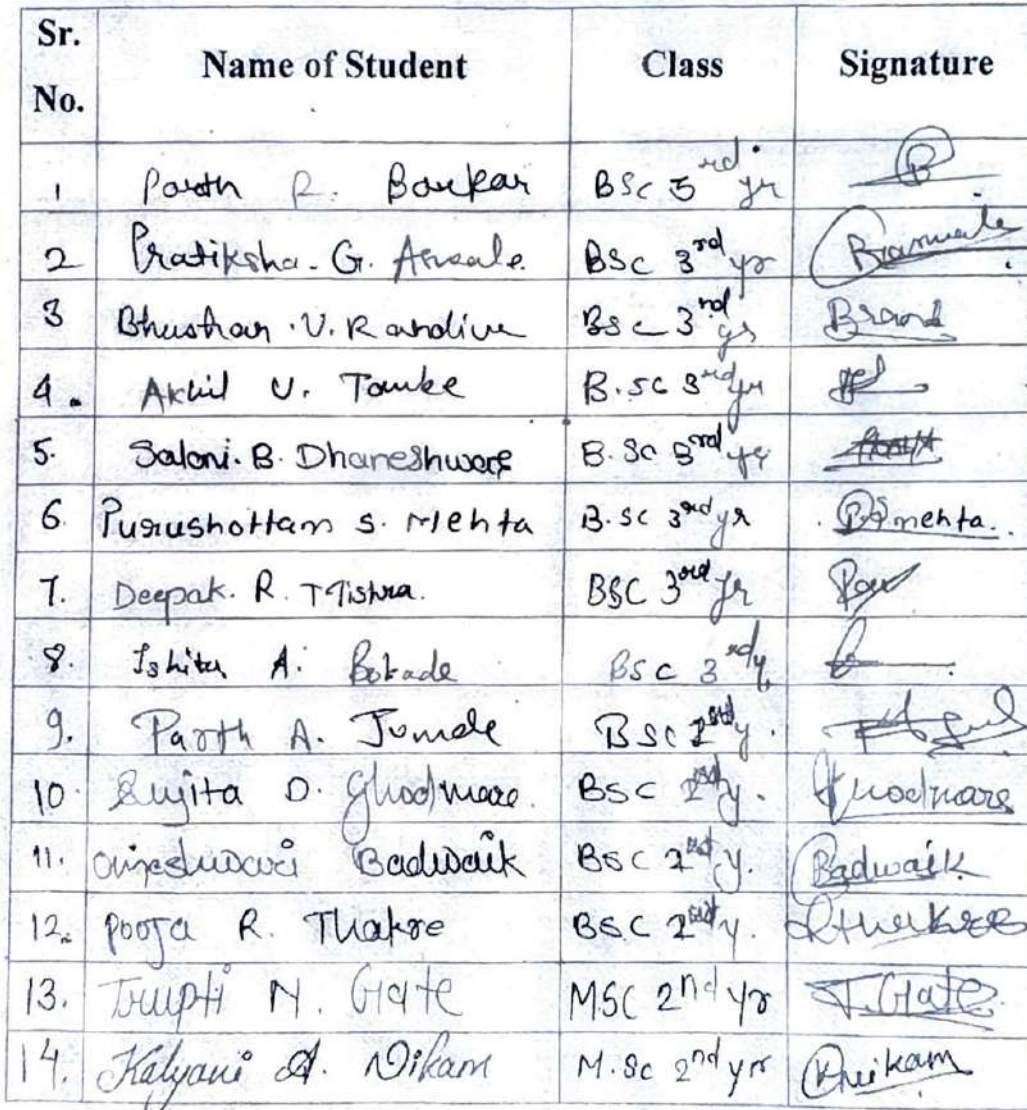 Sr. No. Name of Student Class Signature
1 Parth R. Barkar BSc 3rd yr B
2 Pratiksha. G. BSc 3rd yr
3 Bhushan. V. Randive BSc 3rd yr
4. Akhil U. Tamke B.sc 3rd yr
5. Saloni. B. Dhaneshware B.Sc 3rd yr
6. Purushottam S. Mehta B.sc 3rd yr PSmehta.
7. Deepak. R. Mishra. BSC 3rd yr
8. Ishita A. Bokade BSC 3rd y.
9. Parth A. Jumale BSC 2nd y.
10 Sujita D. Ghodmare. BSC 2nd y. Ghodmare
11. Badwaik BSC 2nd y. Badwaik
12. Pooja R. Thakre BSC 2nd y. Rthakre
13. Trupti N. Gate MSC 2nd yr T.Gate.
14. Kalyani A. Nikam M.Sc 2nd yr Knikam